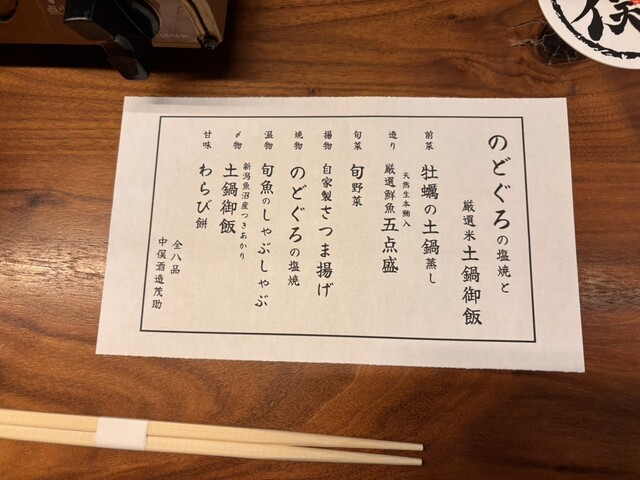 のどぐろの塩焼と
厳選米土鍋御飯
前菜 牡蠣の土鍋蒸し
天然生本鮪入
造り 厳選鮮魚五点盛
旬菜 旬野菜
揚物 自家製さつま揚げ
焼物 のどぐろの塩焼
温物 旬魚のしゃぶしゃぶ
新潟魚沼産つきあかり
〆物 土鍋御飯
甘味 わらび餅
全八品
中俣酒造茂助